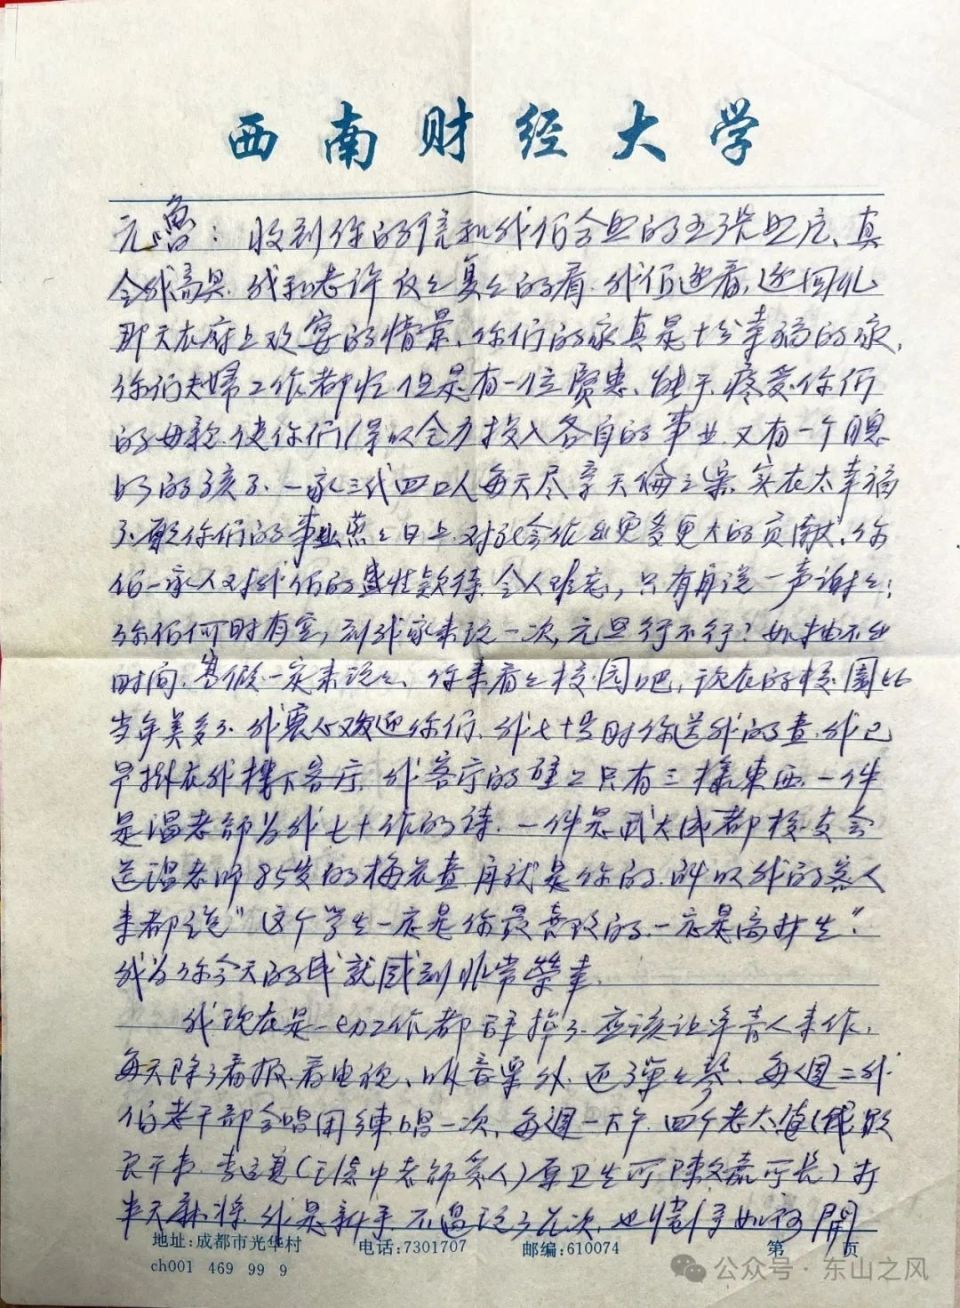 西南财经大学
元鲁：收到你的信和我们合照的五张照片、真
令我高兴. 我和老许仅仅复复的看. 我们边看, 边回忆
那天在府上欢宴的情景、你们的家真是十分幸福的家,
你们夫婦工作都忙 但是有一位贤惠、能干、疼爱你们
的母亲. 使你们得以全力投入各自的事业. 又有一个聪
明的孩子. 一家三代四口人每天尽享天倫之樂, 实在太幸福
了. 願你们的事业蒸蒸日上. 对社会作出更多更大的贡献、你
们一家人对我们的盛情款待, 令人难忘, 只有再说一声谢谢;
你们何时有空, 到我家来玩一次, 元旦行不行? 如抽不出
时间, 寒假一定来玩玩、你来看看校园吧, 现在的校園比
当年美多了. 我衷心欢迎你们. 我七十岁时你送我的畫. 我已
早掛在我樓下客厅, 我客厅的壁上只有三樣東西. 一件
是温老師为我七十作的诗. 一件是武大成都校友会
送温老师85岁的梅花畫 再就是你的. 所以我的客人
来都说“这个学生一定是你最喜欢的. 一定是高材生”.
我为你今天的成就感到非常榮幸.
我现在是一切工作都辞掉了. 应该让年青人来作,
每天除了看报. 看电视、听音樂外. 还了弹弹琴、每週二我
们老干部合唱团练唱一次, 每週一下午 四个老太婆(
(王 中老師夫人)原卫生所陳文 所长)打
半天麻将. 我是新手. 不過玩了几次, 也懂得如何開
地址:成都市光华村 电话:7301707 邮编:610074 第 页
ch001 469 99 9
公众号·东山之风